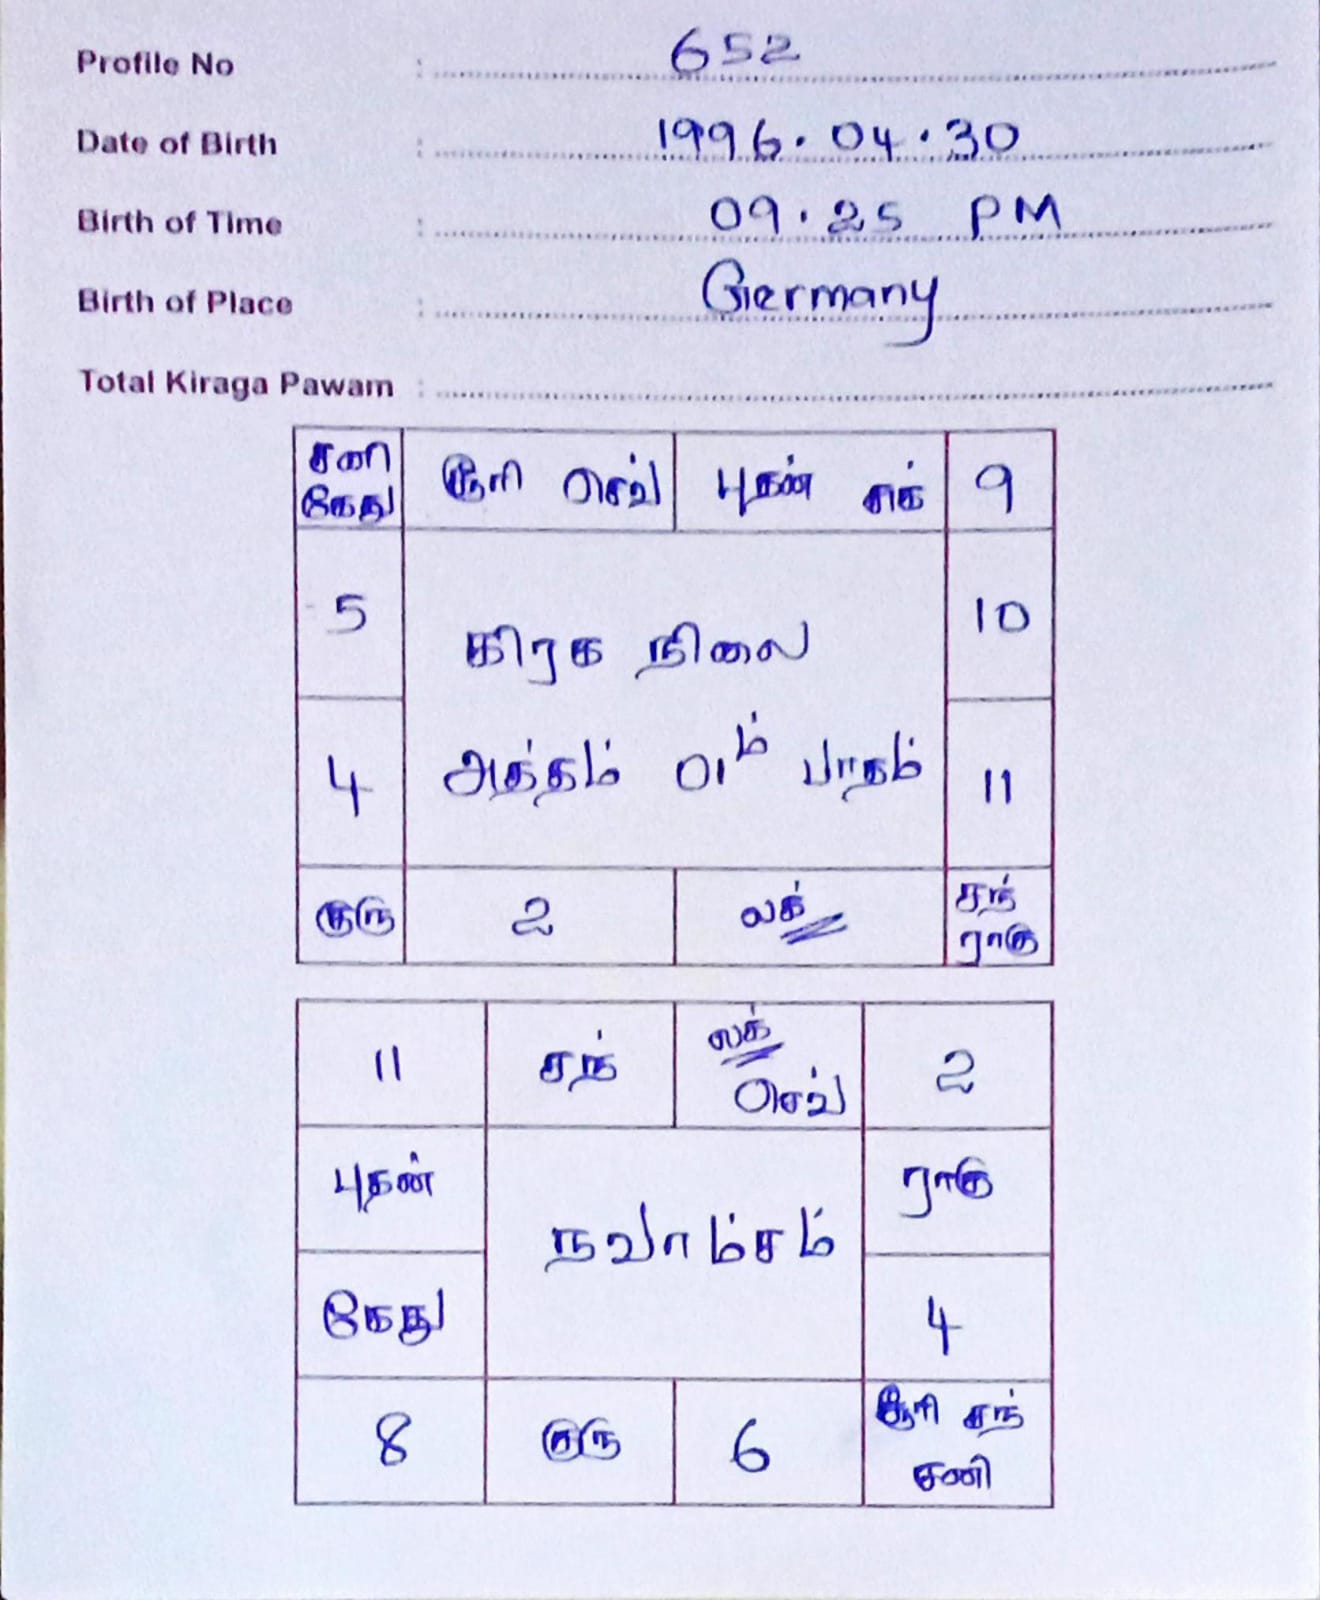 Profile No : 652
Date of Birth : 1996.04.30
Birth of Time : 09.25 PM
Birth of Place : Germany
Total Kiraga Pawam :
சனி
கேது
சூரி செவ்
புதன் சுக்
9
5
10
கிரக நிலை
அத்தம் 01ம் பாதம்
4
11
குரு
2
லக்
சந்
ராகு
11
சந்
லக்
செவ்
2
புதன்
ராகு
நவாம்சம்
கேது
4
8
குரு
6
சூரி சந்
சனி